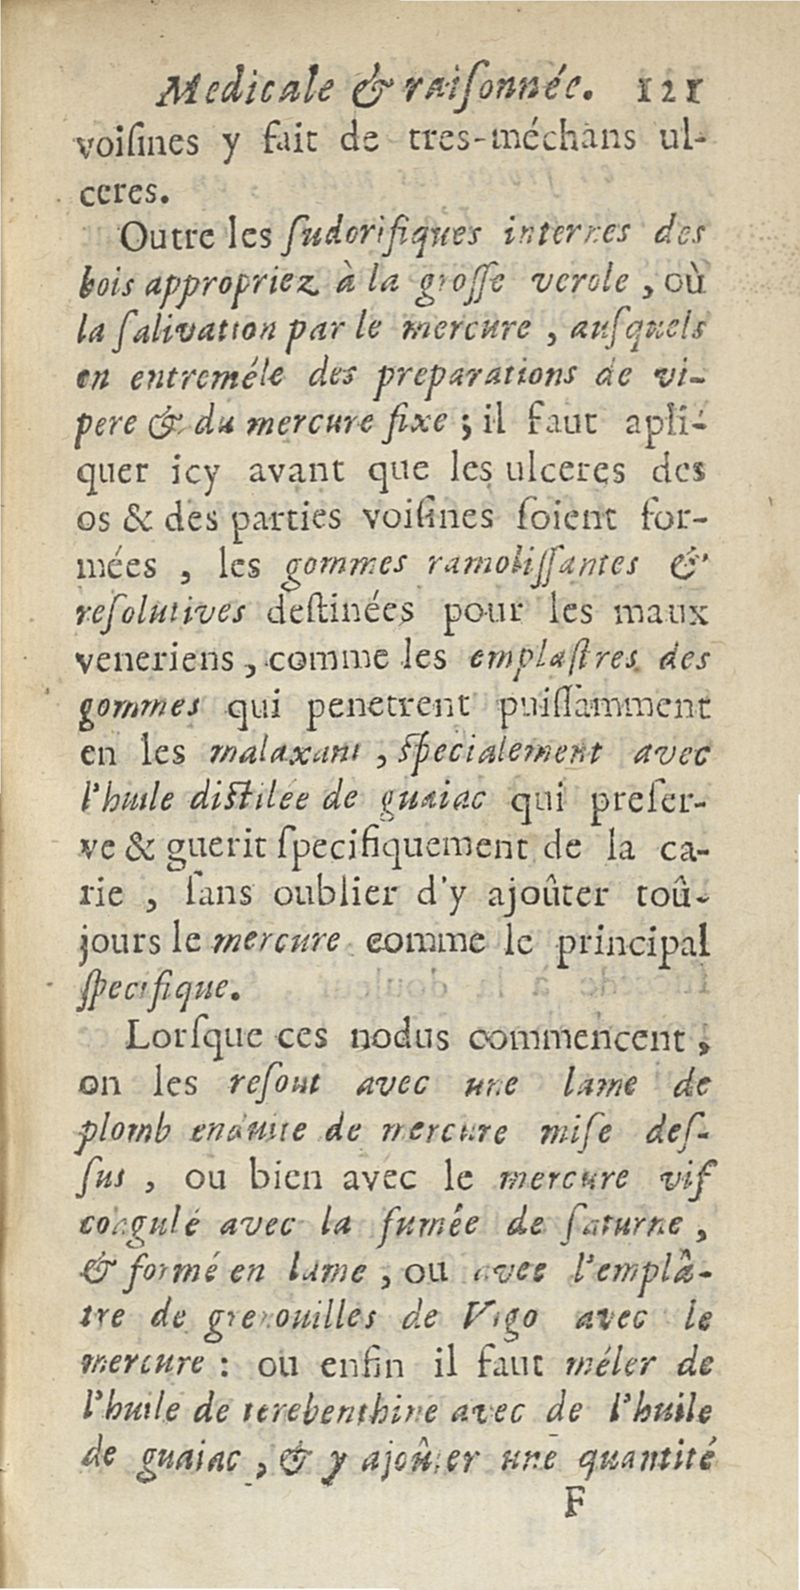 Medicale & raiſonnée. 121
voiſines y fait de tres-méchans ul-
ceres.
Outre les ſudorifiques internes des
bois appropriez à la groſſe verole, où
la ſalivation par le mercure, auſquels
on entreméle des preparations de vi-
pere & du mercure fixe ; il faut apli-
quer icy avant que les ulceres des
os & des parties voiſines ſoient for-
mées, les gommes ramoliſſantes &
reſolutives deſtinées pour les maux
veneriens, comme les emplaſtres des
gommes qui penetrent puiſſamment
en les malaxant, ſpecialement avec
l'huile diſtilée de guaiac qui preſer-
ve & guerit ſpecifiquement de la ca-
rie, ſans oublier d'y ajoûter toû-
jours le mercure comme le principal
ſpecifique.
Lorſque ces nodus commencent,
on les reſout avec une lame de
plomb enduite de mercure miſe deſ-
ſus, ou bien avec le mercure vif
coagulé avec la fumée de ſaturne,
& formé en lame, ou avec l'emplâ-
tre de grenouilles de Vigo avec le
mercure : ou enfin il faut méler de
l'huile de terebenthine avec de l'huile
de guaiac, & y ajoûter une quantité
F